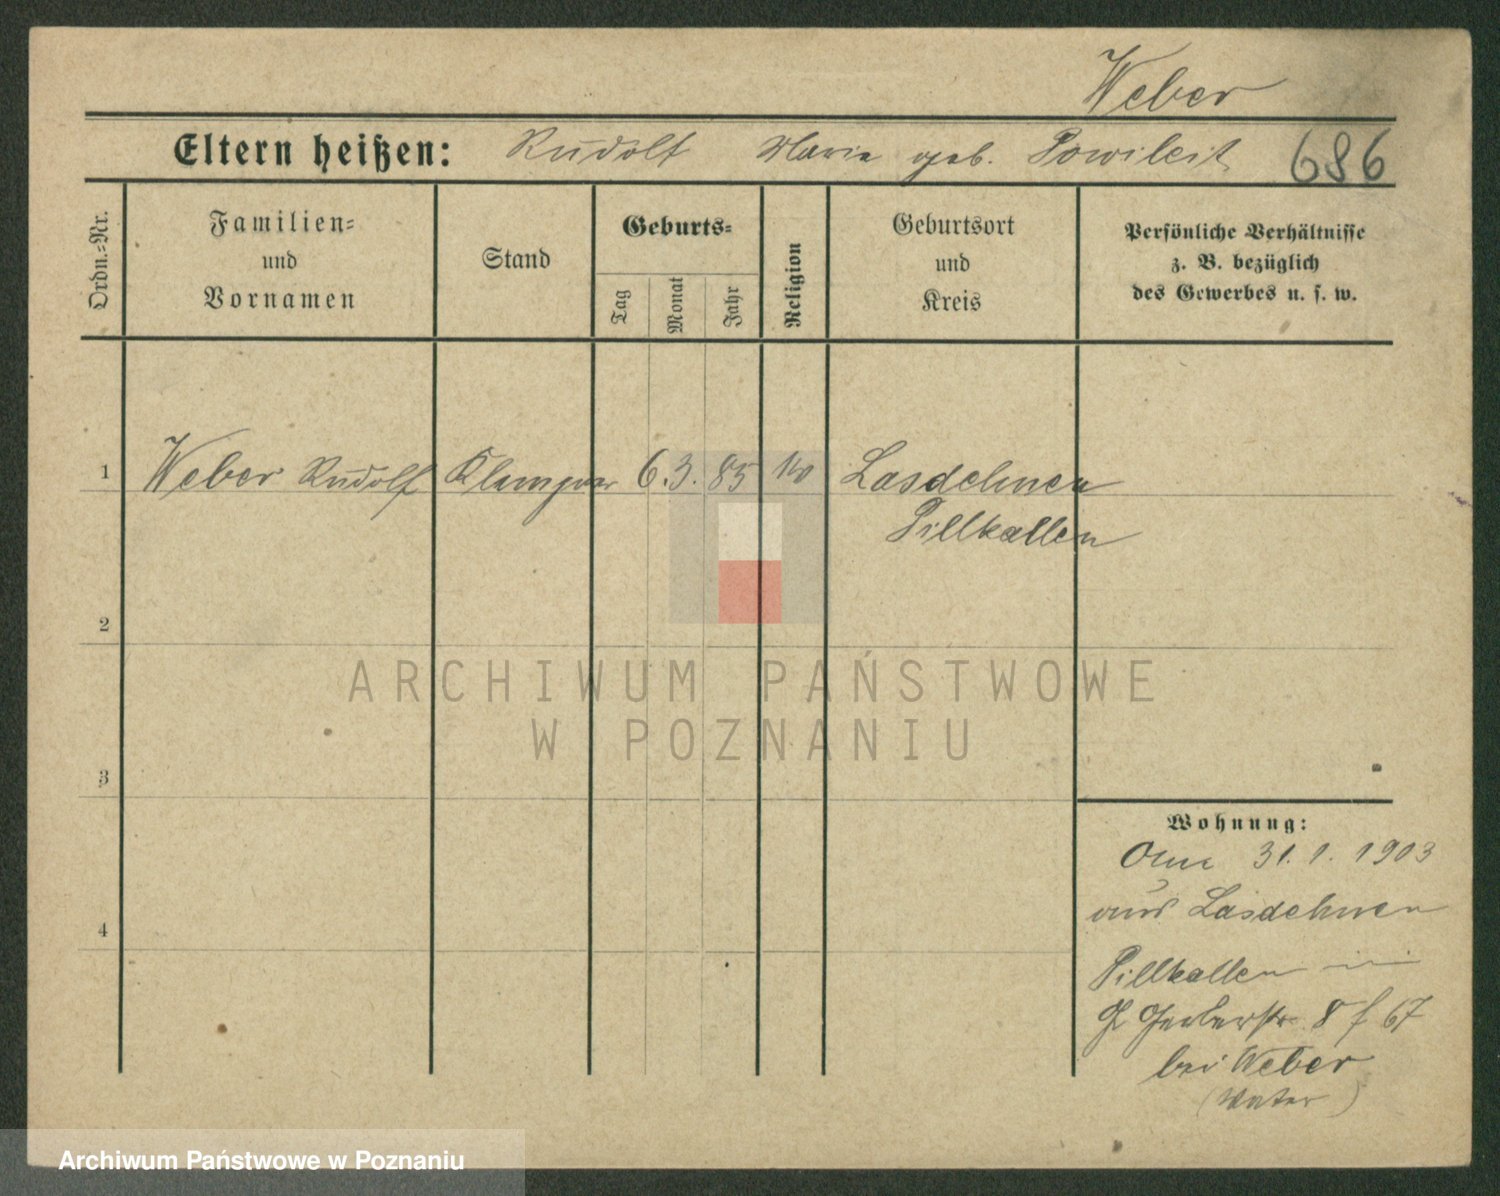 Weber
Eltern heißen: Rudolf Marie geb. Powileit 686
Ordn.-Nr.
Familien-
und
Vornamen
Stand
Geburts-
Tag
Monat
Jahr
Religion
Geburtsort
und
Kreis
Persönliche Verhältnisse
z. B. bezüglich
des Gewerbes u. s. w.
1 Weber Rudolf Klempner 6. 3. 85 Lasdehnen
Pillkallen
2
3
4
Wohnung:
31. 1. 1903
aus Lasdehnen
Pillkallen
Gr Gerberstr. 8 f 67
bei Weber
(Vater)
ARCHIWUM PAŃSTWOWE
W POZNANIU
Archiwum Państwowe w Poznaniu